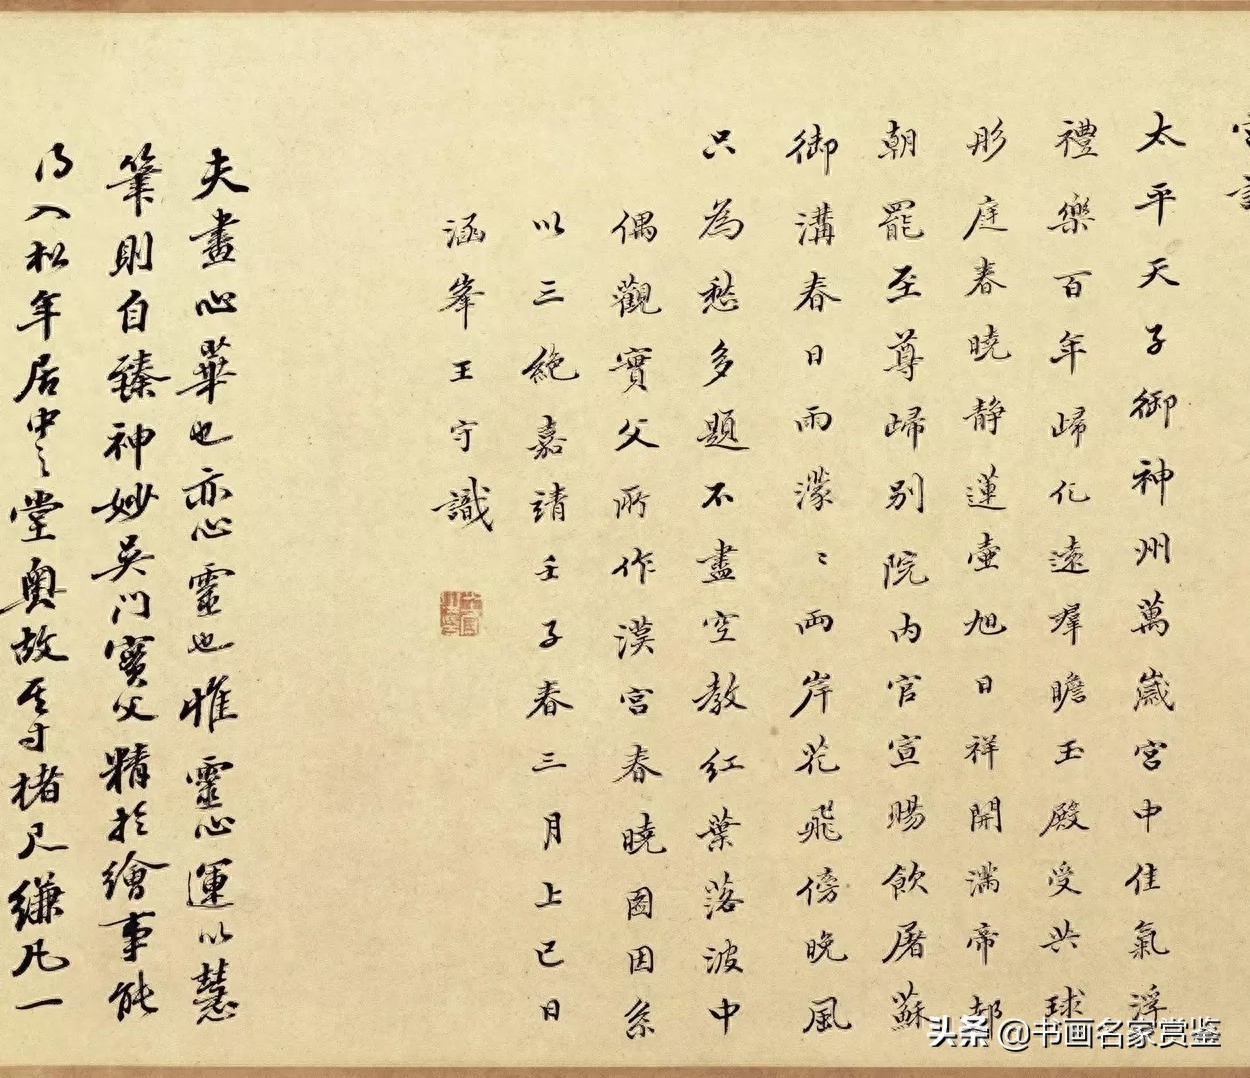 太平天子御神州萬歲宮中佳氣浮
禮樂百年歸化遠群瞻玉殿受共球
彤庭春曉静蓮壺旭日祥開滿帝都
朝罷至尊歸別院内官宣賜飲屠蘇
御溝春日雨濛〻兩岸花飛傍晚風
只為愁多題不盡空教紅葉落波中
偶觀實父所作漢宮春曉圖因系
以三絶嘉靖壬子春三月上巳日
涵峯王守識
夫畫心華也亦心靈也惟靈心運以慧
筆則自臻神妙吴門實父精於繪事能
得入松年居中之堂奥故其寸楮尺縑凡一
头条 @书画名家赏鉴